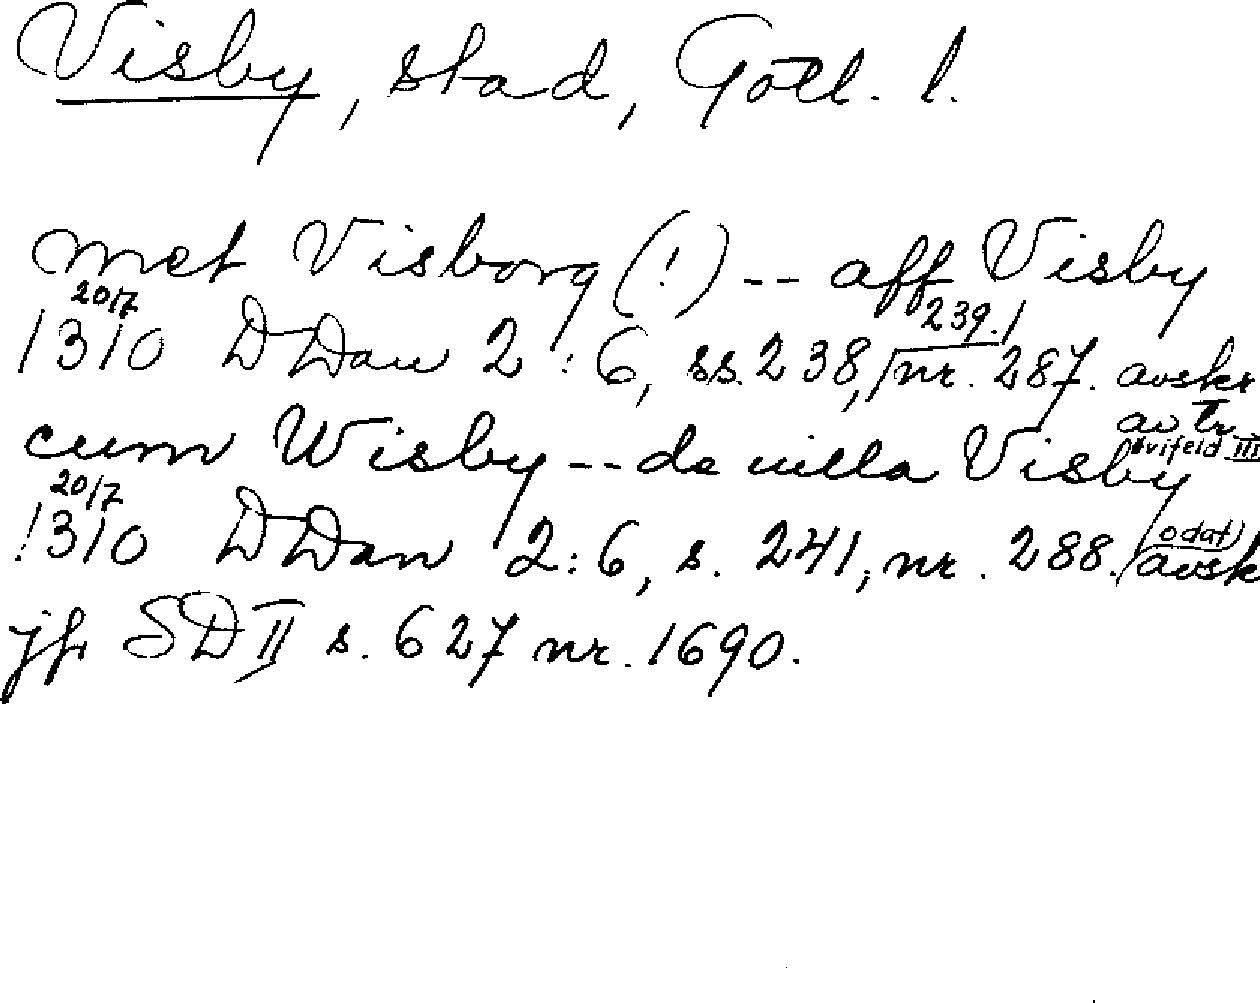 Visby, stad, Gotl. l.
met Visborg (!) -- aff Visby
1310 20/7 DDan 2:6, ss. 238, 239. nr. 287. avskr
av Tr
Hvitfeld III
cum Wisby -- de uilla Visby
1310 20/7 DDan 2:6, s. 241, nr. 288. (odat) avskr
jfr SD II s. 627 nr. 1690.